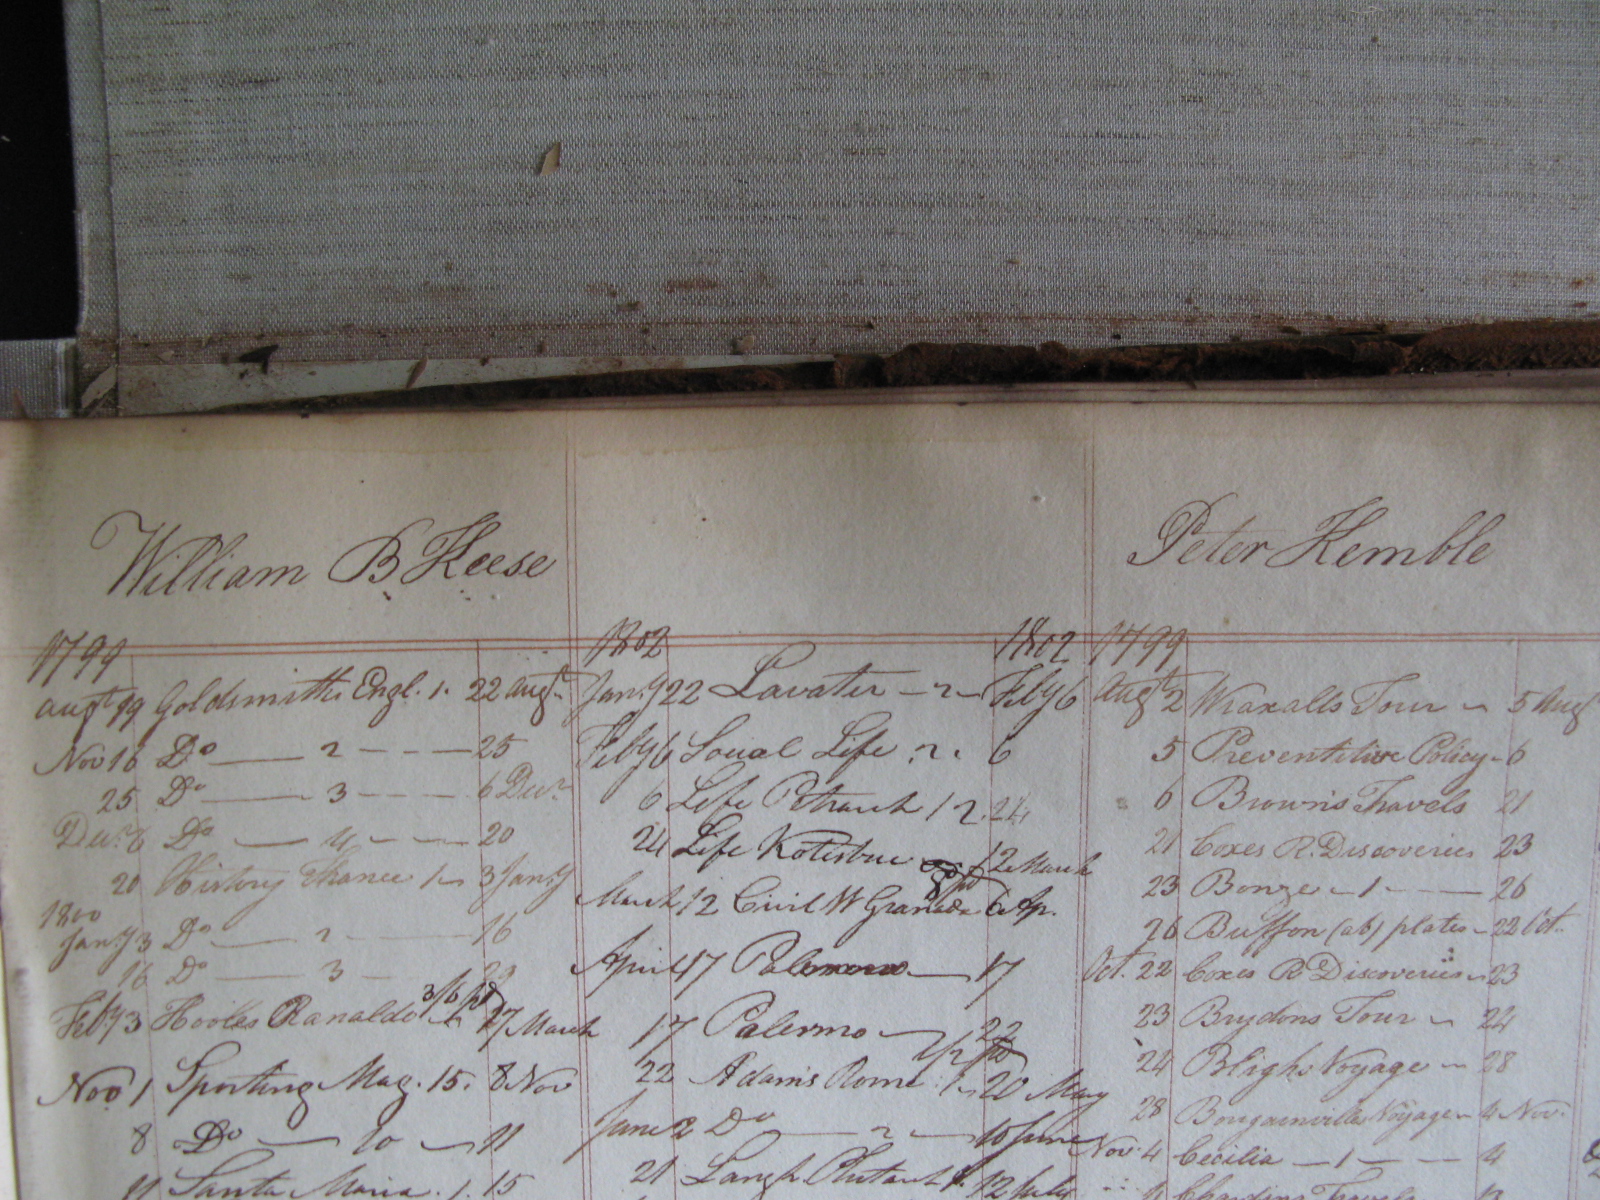 William B Keese
1799
Augt 19 Goldsmiths Engl. 1. 22 Augt
Nov 16 Do 2 25
25 Do 3 6 Decr
Decr 6 Do 4 20
20 History France 1 3 Jany
1800
Jany 3 Do 2 16
16 Do 3 23
Feby 3 Hooles 3/6 pd 27 March
Nov 1 Sporting Mag. 15. 8 Nov
8 Do 10 11
11 Santa Maria. 1. 15
1802 1802
Jany 22 Lavater 2 Feby 6
Feby 6 Social Life 2. 6
6 Life Petrarch 1 2. 24
24 Life Kotzbue 12 March
March 12 Civil W Granada 6 Ap.
April 17 17
17 Palermo 22
22 Adams Rome 1 20 May
June 2 Do 2 10 June
21 Langh Plutarch 1. 12 July
Peter Kemble
1799
Augt 2 Wraxalls Tour 5 Augt
5 Preventitive Policy 6
6 Browns Travels 21
21 Coxes R. Discoveries 23
23 Bonze 1 26
26 Buffon (ab) plates 22 Oct.
Oct. 22 Coxes R Discoveries 23
23 Brydons Tour 24
24 Blighs Voyage 28
28 Bougainvilles Voyage 4 Nov.
Nov. 4 Cecilia 1 4
Chardins Travels